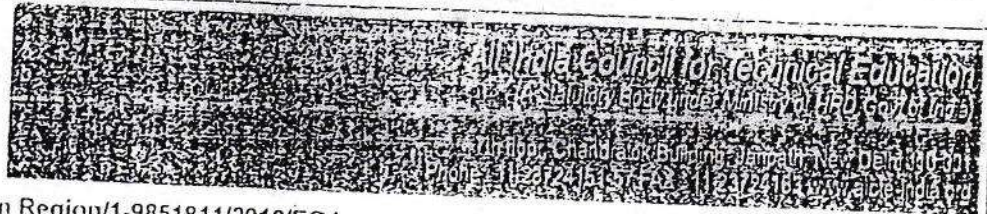 All India Council for Technical Education
(A Statutory Body under Ministry of HRD, Govt. of India)
7th Floor, Chandralok Building, Janpath, New Delhi 110 001
Phone: 11-23724151 www.aicte-india.org
n Region/1-9851811/2010/EOA